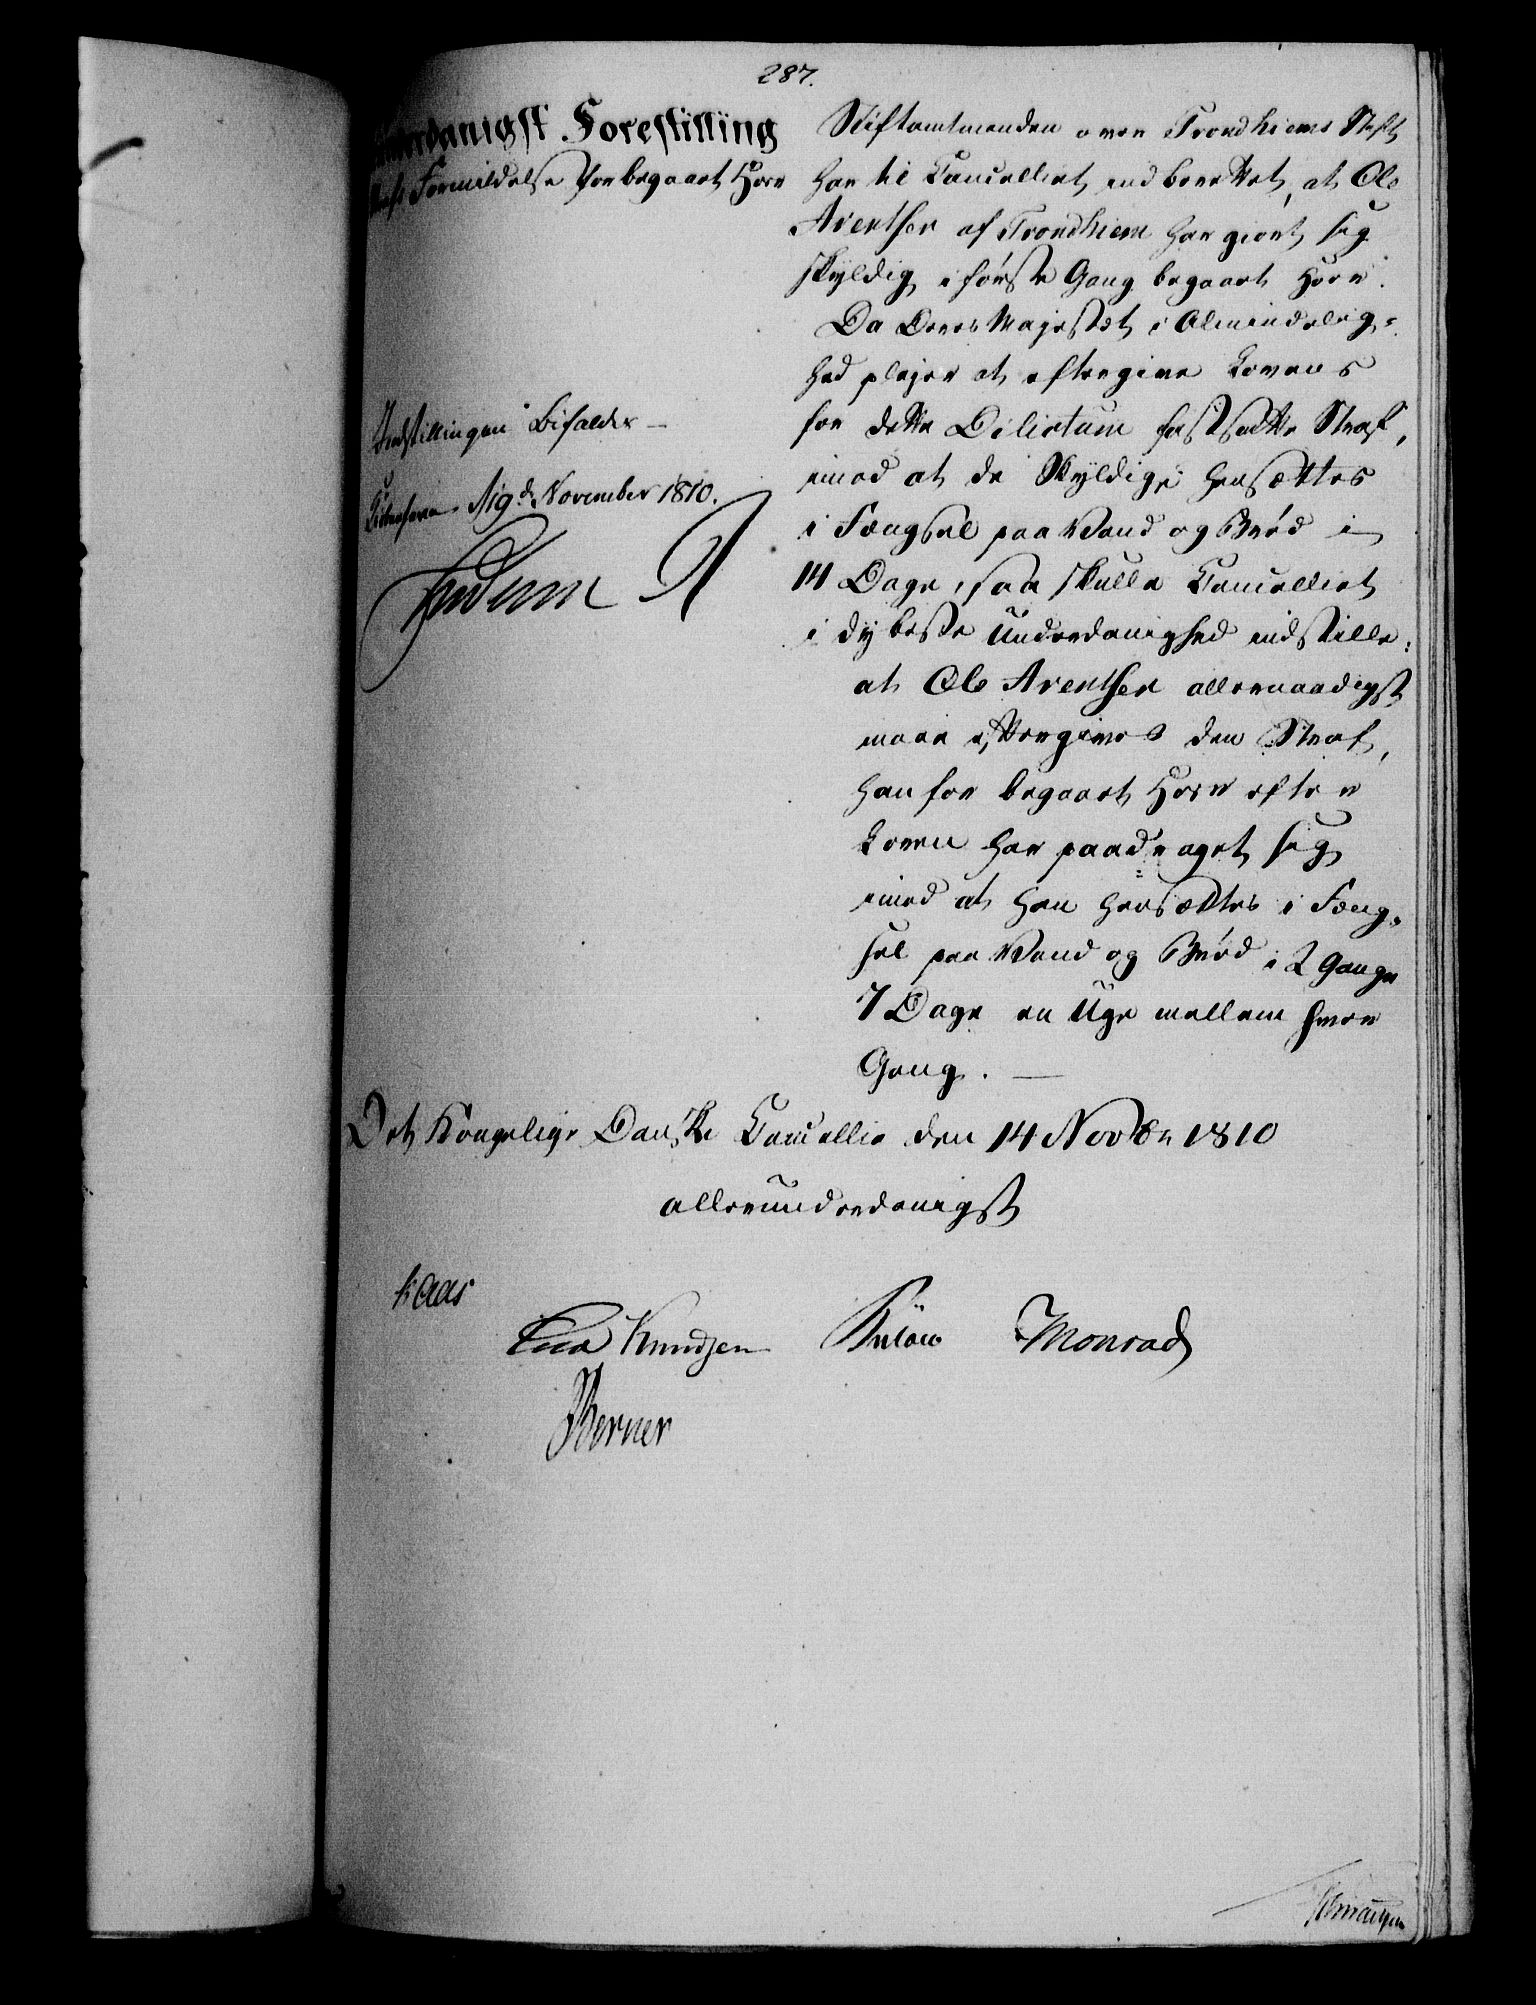 287.
Forestilling
Formildelse for begaaet Hoer
Indstillingen Bifaldes —
d. 19d. November 1810.
Frederik R
Stiftamtmanden over Trondhiems Stift
har til Cancelliet indberettet, at Ole
Arentsen af Trondhiem har giort sig
skyldig i første Gang begaaet Hoer.
Da Deres Majestæt i Almindelig-
hed plejer at eftergive Lovens
for dette Delictum fastsatte Straf,
imod at de Skyldige hensættes
i Fængsel paa Vand og Brød i
14 Dage, saa skulle Cancelliet
i dybeste Underdanighed indstille:
at Ole Arentsen allernaadigst
maae eftergives den Straf,
han for begaaet Hoer efter
Loven har paadraget sig
imod at han hensættes i Fæng-
sel paa Vand og Brød i 2 Gange
7 Dage en Uge mellem hver
Gang. —
Det Kongelige Danske Cancellie den 14 Novbr 1810
allerunderdanigst
Kaas
Knudsen Bülow Monrad
Berner